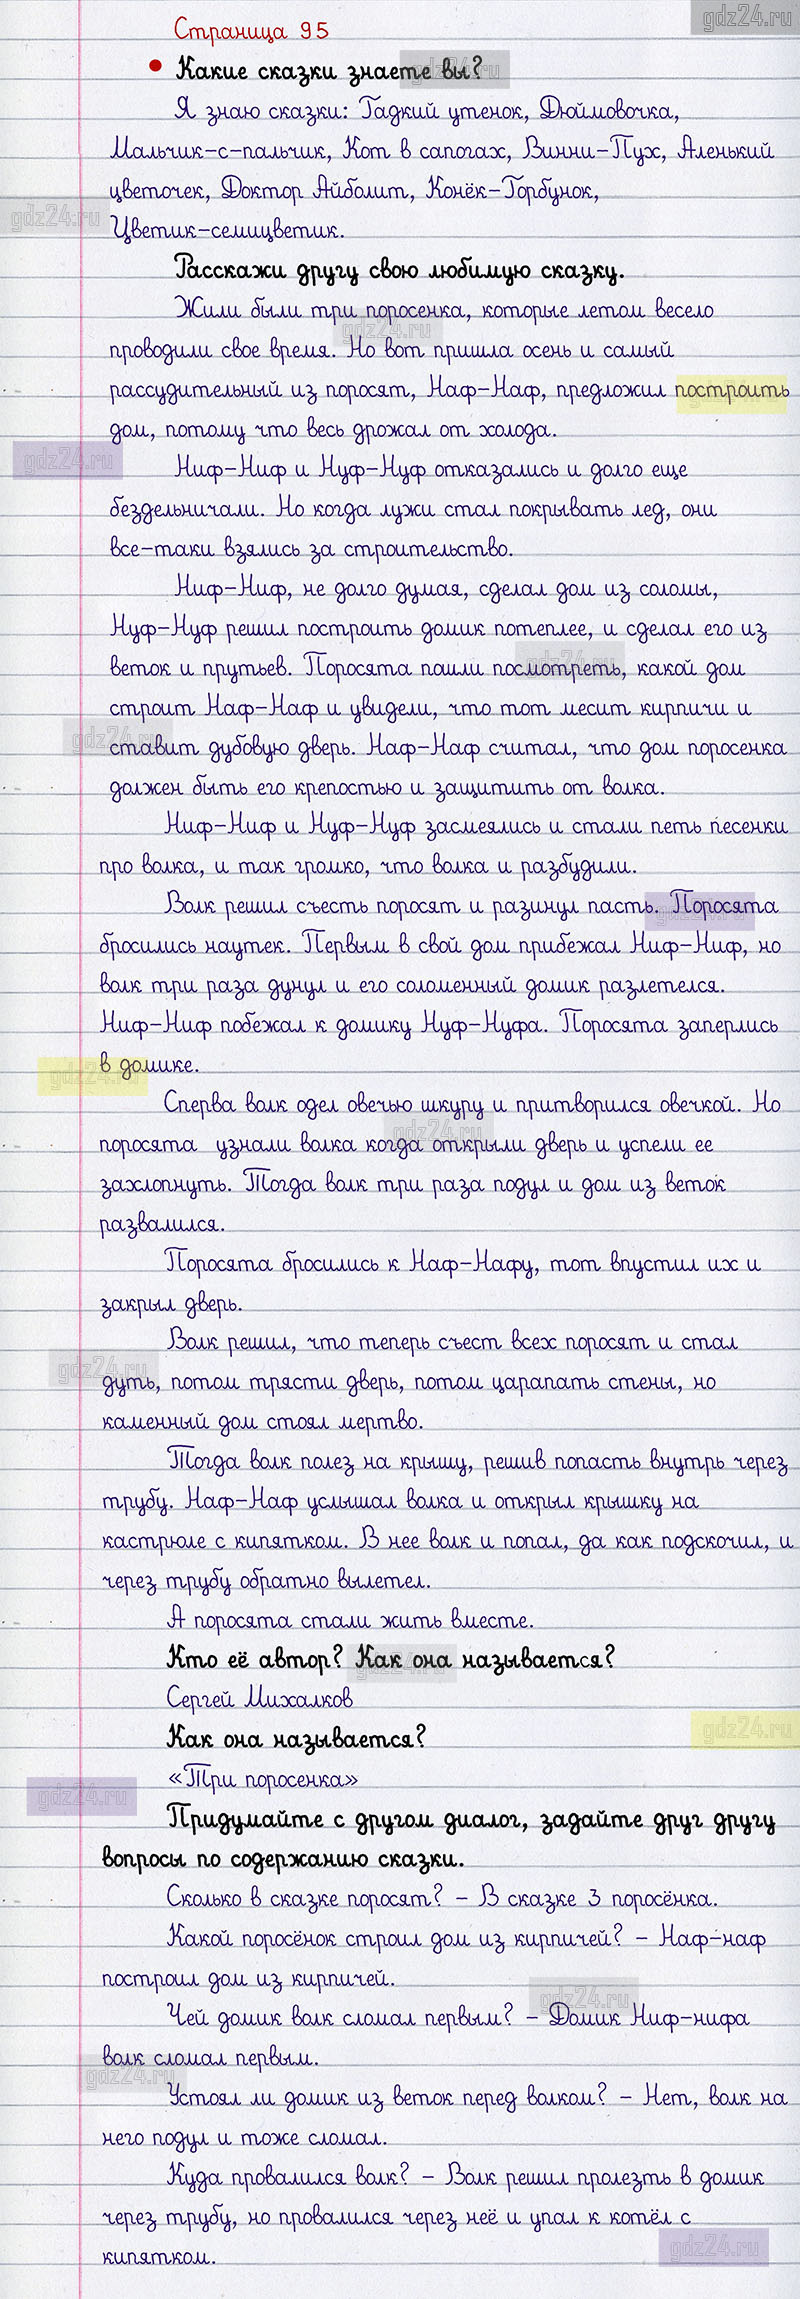 gdz24.ru
Страница 95
Какие сказки знаете вы?
Я знаю сказки: Гадкий утенок, Дюймовочка,
Мальчик-с-пальчик, Кот в сапогах, Винни-Пух, Аленький
цветочек, Доктор Айболит, Конёк-Горбунок,
Цветик-семицветик.
Расскажи другу свою любимую сказку.
Жили были три поросенка, которые летом весело
проводили свое время. Но вот пришла осень и самый
рассудительный из поросят, Наф-Наф, предложил построить
дом, потому что весь дрожал от холода.
Ниф-Ниф и Нуф-Нуф отказались и долго еще
бездельничали. Но когда лужи стал покрывать лед, они
все-таки взялись за строительство.
Ниф-Ниф, не долго думая, сделал дом из соломы,
Нуф-Нуф решил построить домик потеплее, и сделал его из
веток и прутьев. Поросята пошли посмотреть, какой дом
строит Наф-Наф и увидели, что тот месит кирпичи и
ставит дубовую дверь. Наф-Наф считал, что дом поросенка
должен быть его крепостью и защитить от волка.
Ниф-Ниф и Нуф-Нуф засмеялись и стали петь песенки
про волка, и так громко, что волка и разбудили.
Волк решил съесть поросят и разинул пасть. Поросята
бросились наутек. Первым в свой дом прибежал Ниф-Ниф, но
волк три раза дунул и его соломенный домик разлетелся.
Ниф-Ниф побежал к домику Нуф-Нуфа. Поросята заперлись
в домике.
Сперва волк одел овечью шкуру и притворился овечкой. Но
поросята узнали волка когда открыли дверь и успели ее
захлопнуть. Тогда волк три раза подул и дом из веток
развалился.
Поросята бросились к Наф-Нафу, тот впустил их и
закрыл дверь.
Волк решил, что теперь съест всех поросят и стал
дуть, потом трясти дверь, потом царапать стены, но
каменный дом стоял мертво.
Тогда волк полез на крышу, решив попасть внутрь через
трубу. Наф-Наф услышал волка и открыл крышку на
кастрюле с кипятком. В нее волк и попал, да как подскочил, и
через трубу обратно вылетел.
А поросята стали жить вместе.
Кто её автор? Как она называется?
Сергей Михалков
Как она называется?
«Три поросенка»
Придумайте с другом диалог, задайте друг другу
вопросы по содержанию сказки.
Сколько в сказке поросят? – В сказке 3 поросёнка.
Какой поросёнок строил дом из кирпичей? – Наф-наф
построил дом из кирпичей.
Чей домик волк сломал первым? – Домик Ниф-нифа
волк сломал первым.
Устоял ли домик из веток перед волком? – Нет, волк на
него подул и тоже сломал.
Куда провалился волк? – Волк решил пролезть в домик
через трубу, но провалился через неё и упал к котёл с
кипятком.
gdz24.ru